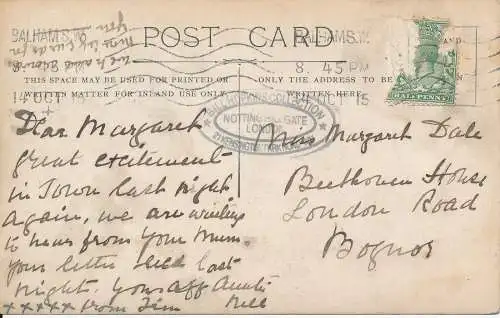 BALHAM.S.W.
8. 45 PM
14 OCT 15
POST CARD
THIS SPACE MAY BE USED FOR PRINTED OR
WRITTEN MATTER FOR INLAND USE ONLY.
ONLY THE ADDRESS TO BE
WRITTEN HERE.
HALFPENNY
COLLECTION
NOTTING HILL GATE
LONDON
Dear Margaret
great excitement
in Town last night
again, we are waiting
to hear from your Mum.
your letter last
night. Your aff Auntie
Nell
xxxxx from Jim
Miss Margaret Dale
Beethoven House
London Road
Bognor